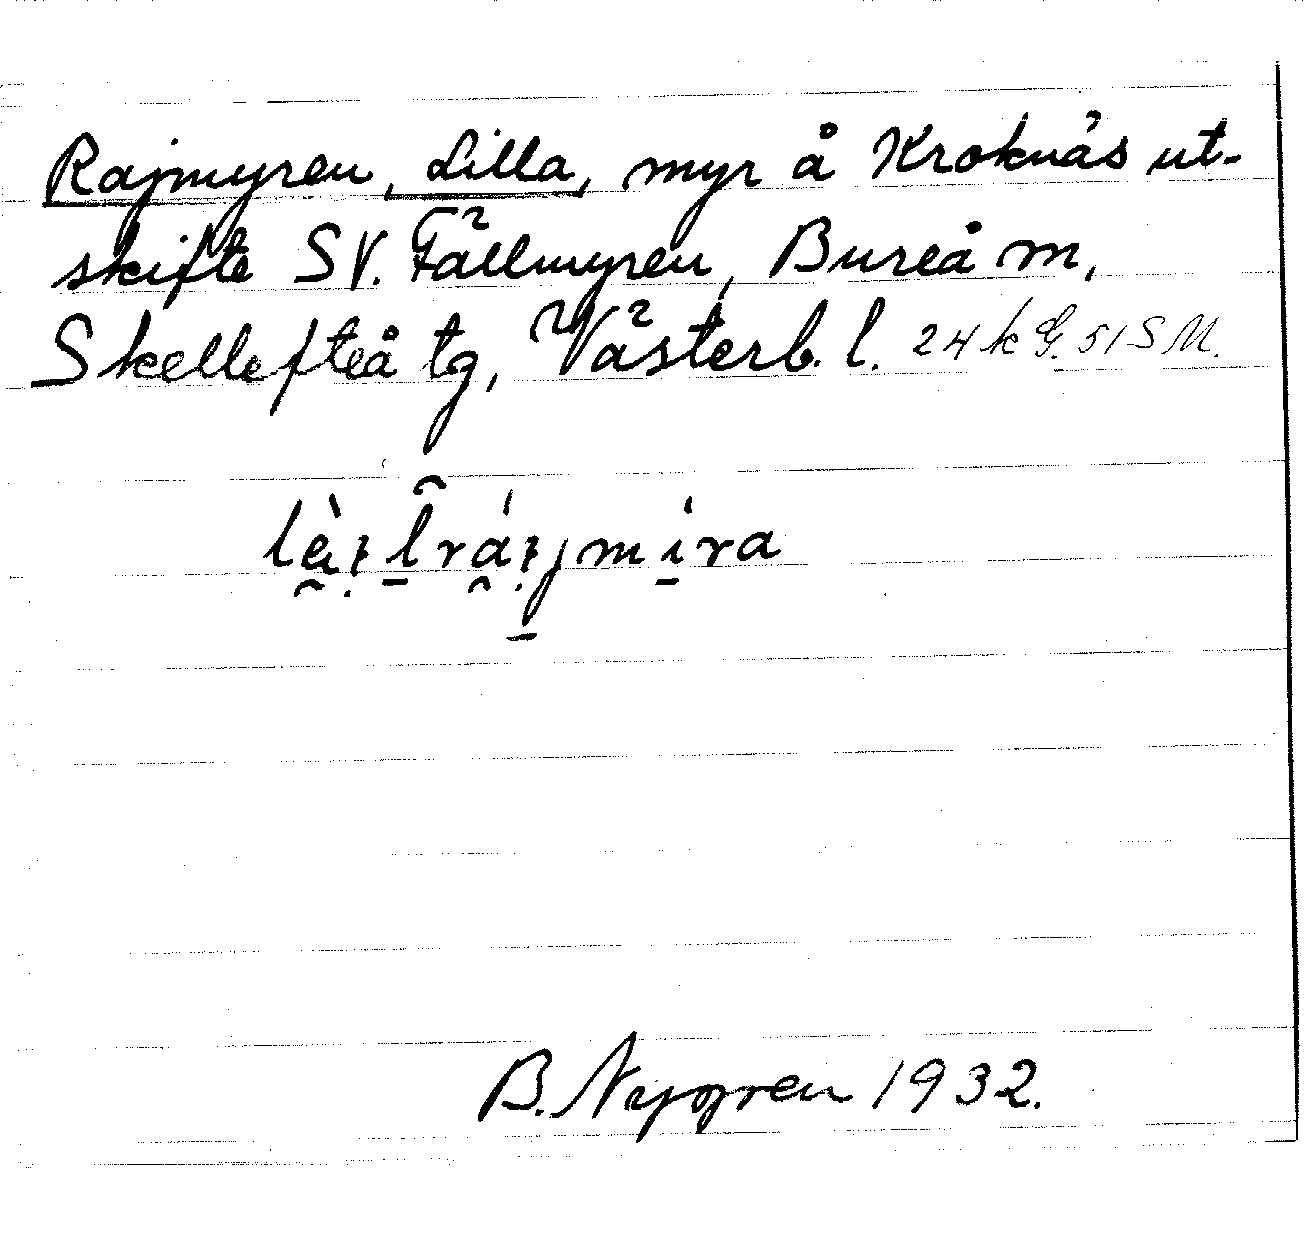 Rajmyren, Lilla, myr å Kroknäs ut-
skifte SV. Fällmyren, Bureå m,
Skellefteå tg, Västerb. l. 24 k G. 51 S M.
B. Nygren 1932.